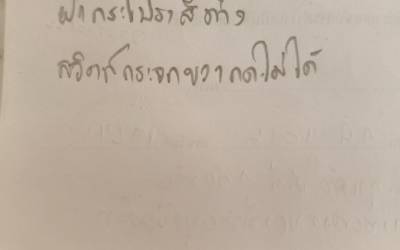 ฝากระโปรงสีด่าง
สวิตท์กระจกขวากดไม่ได้